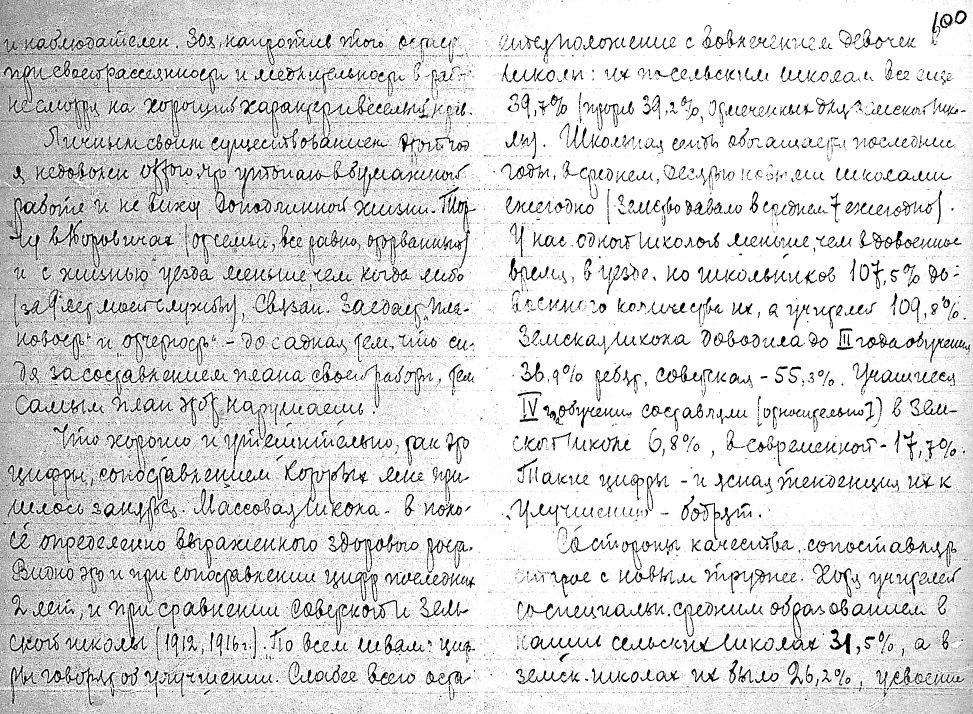 и наблюдателен. Зоя, напротив того
при своей рассеянности и медлительности в раб
несмотря на хороший характер и веселый нрав.
Личным своим существованием этот год
я недоволен оттого, что утопаю в бумажной
работе и не вижу доподлинной жизни. Тор-
чу в Боровичах (от семьи, все равно, оторванный)
и с жизнью уезда меньше, чем когда либо
(за 9 лет моей службы), связан. Заедает "пла-
новость" и "отчетность" - досадная тем, что си-
дя за составлением плана своей работы, тем
самым план этот нарушаешь.
Что хорошо и утешительно, так это
цифры, сопоставлением которых мне при-
шлось заняться. Массовая школа - в поло-
се определенно выраженного здорового роста.
Видно это и при сопоставлении цифр последних
2 лет, и при сравнении советской и зем-
ской школы (1912, 1916 г.). По всем швам: циф-
ры говорят об улучшении. Слабее всего оста-
100
положение с вовлечением девочек в
школы: их по сельским школам все еще
39,7% (против 39,2%, отмеченных для земской шко-
лы). Школьная сеть обогащается последние
годы, в среднем, десятью новыми школами
ежегодно (земство давало в среднем 7 ежегодно).
У нас одной школой меньше, чем в довоенное
время, в уезде. но школьников 107,5% до-
военного количества их, а учителей 109,8%.
Земская школа доводила до III года обучения
36,9% ребят, советская - 55,3%. Учащиеся
IV г. обучения составляли (относительно I) в зем-
ской школе 6,8%, в современной - 17,7%.
Такие цифры - и ясная тенденция их к
улучшению - бодрят.
Со стороны качества, сопоставлять
старое с новым труднее. Хотя учителей
со специальн. средним образованием в
наших сельских школах 31,5%, а в
земск. школах их было 26,2%,